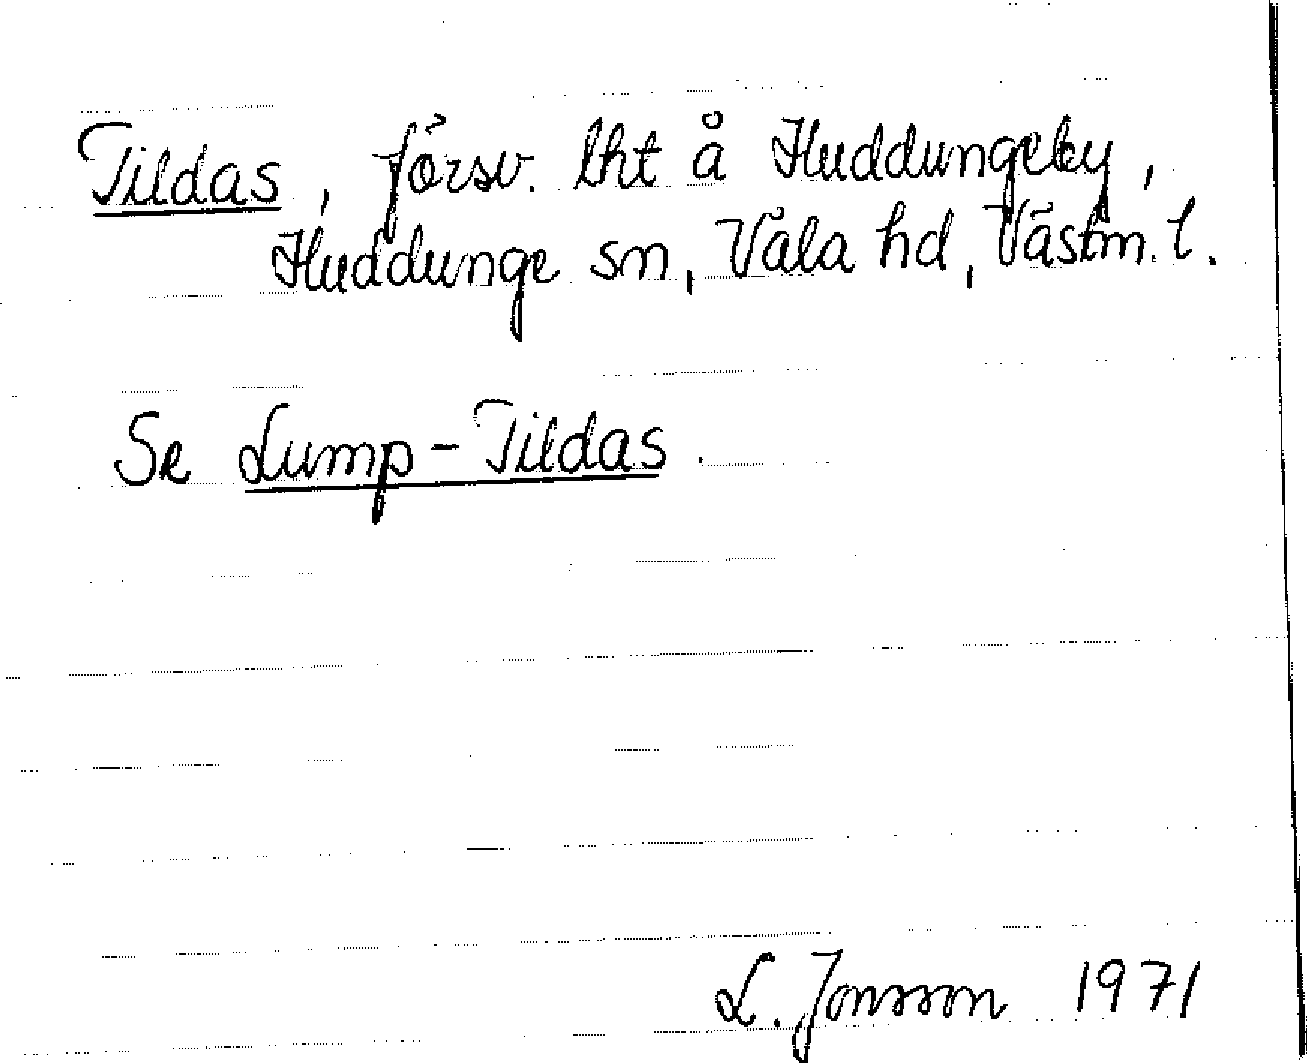 Tildas, försv. lht å Huddungeby,
Huddunge sn, Våla hd, Västm. l.
Se Lump-Tildas.
L. Jonsson 1971